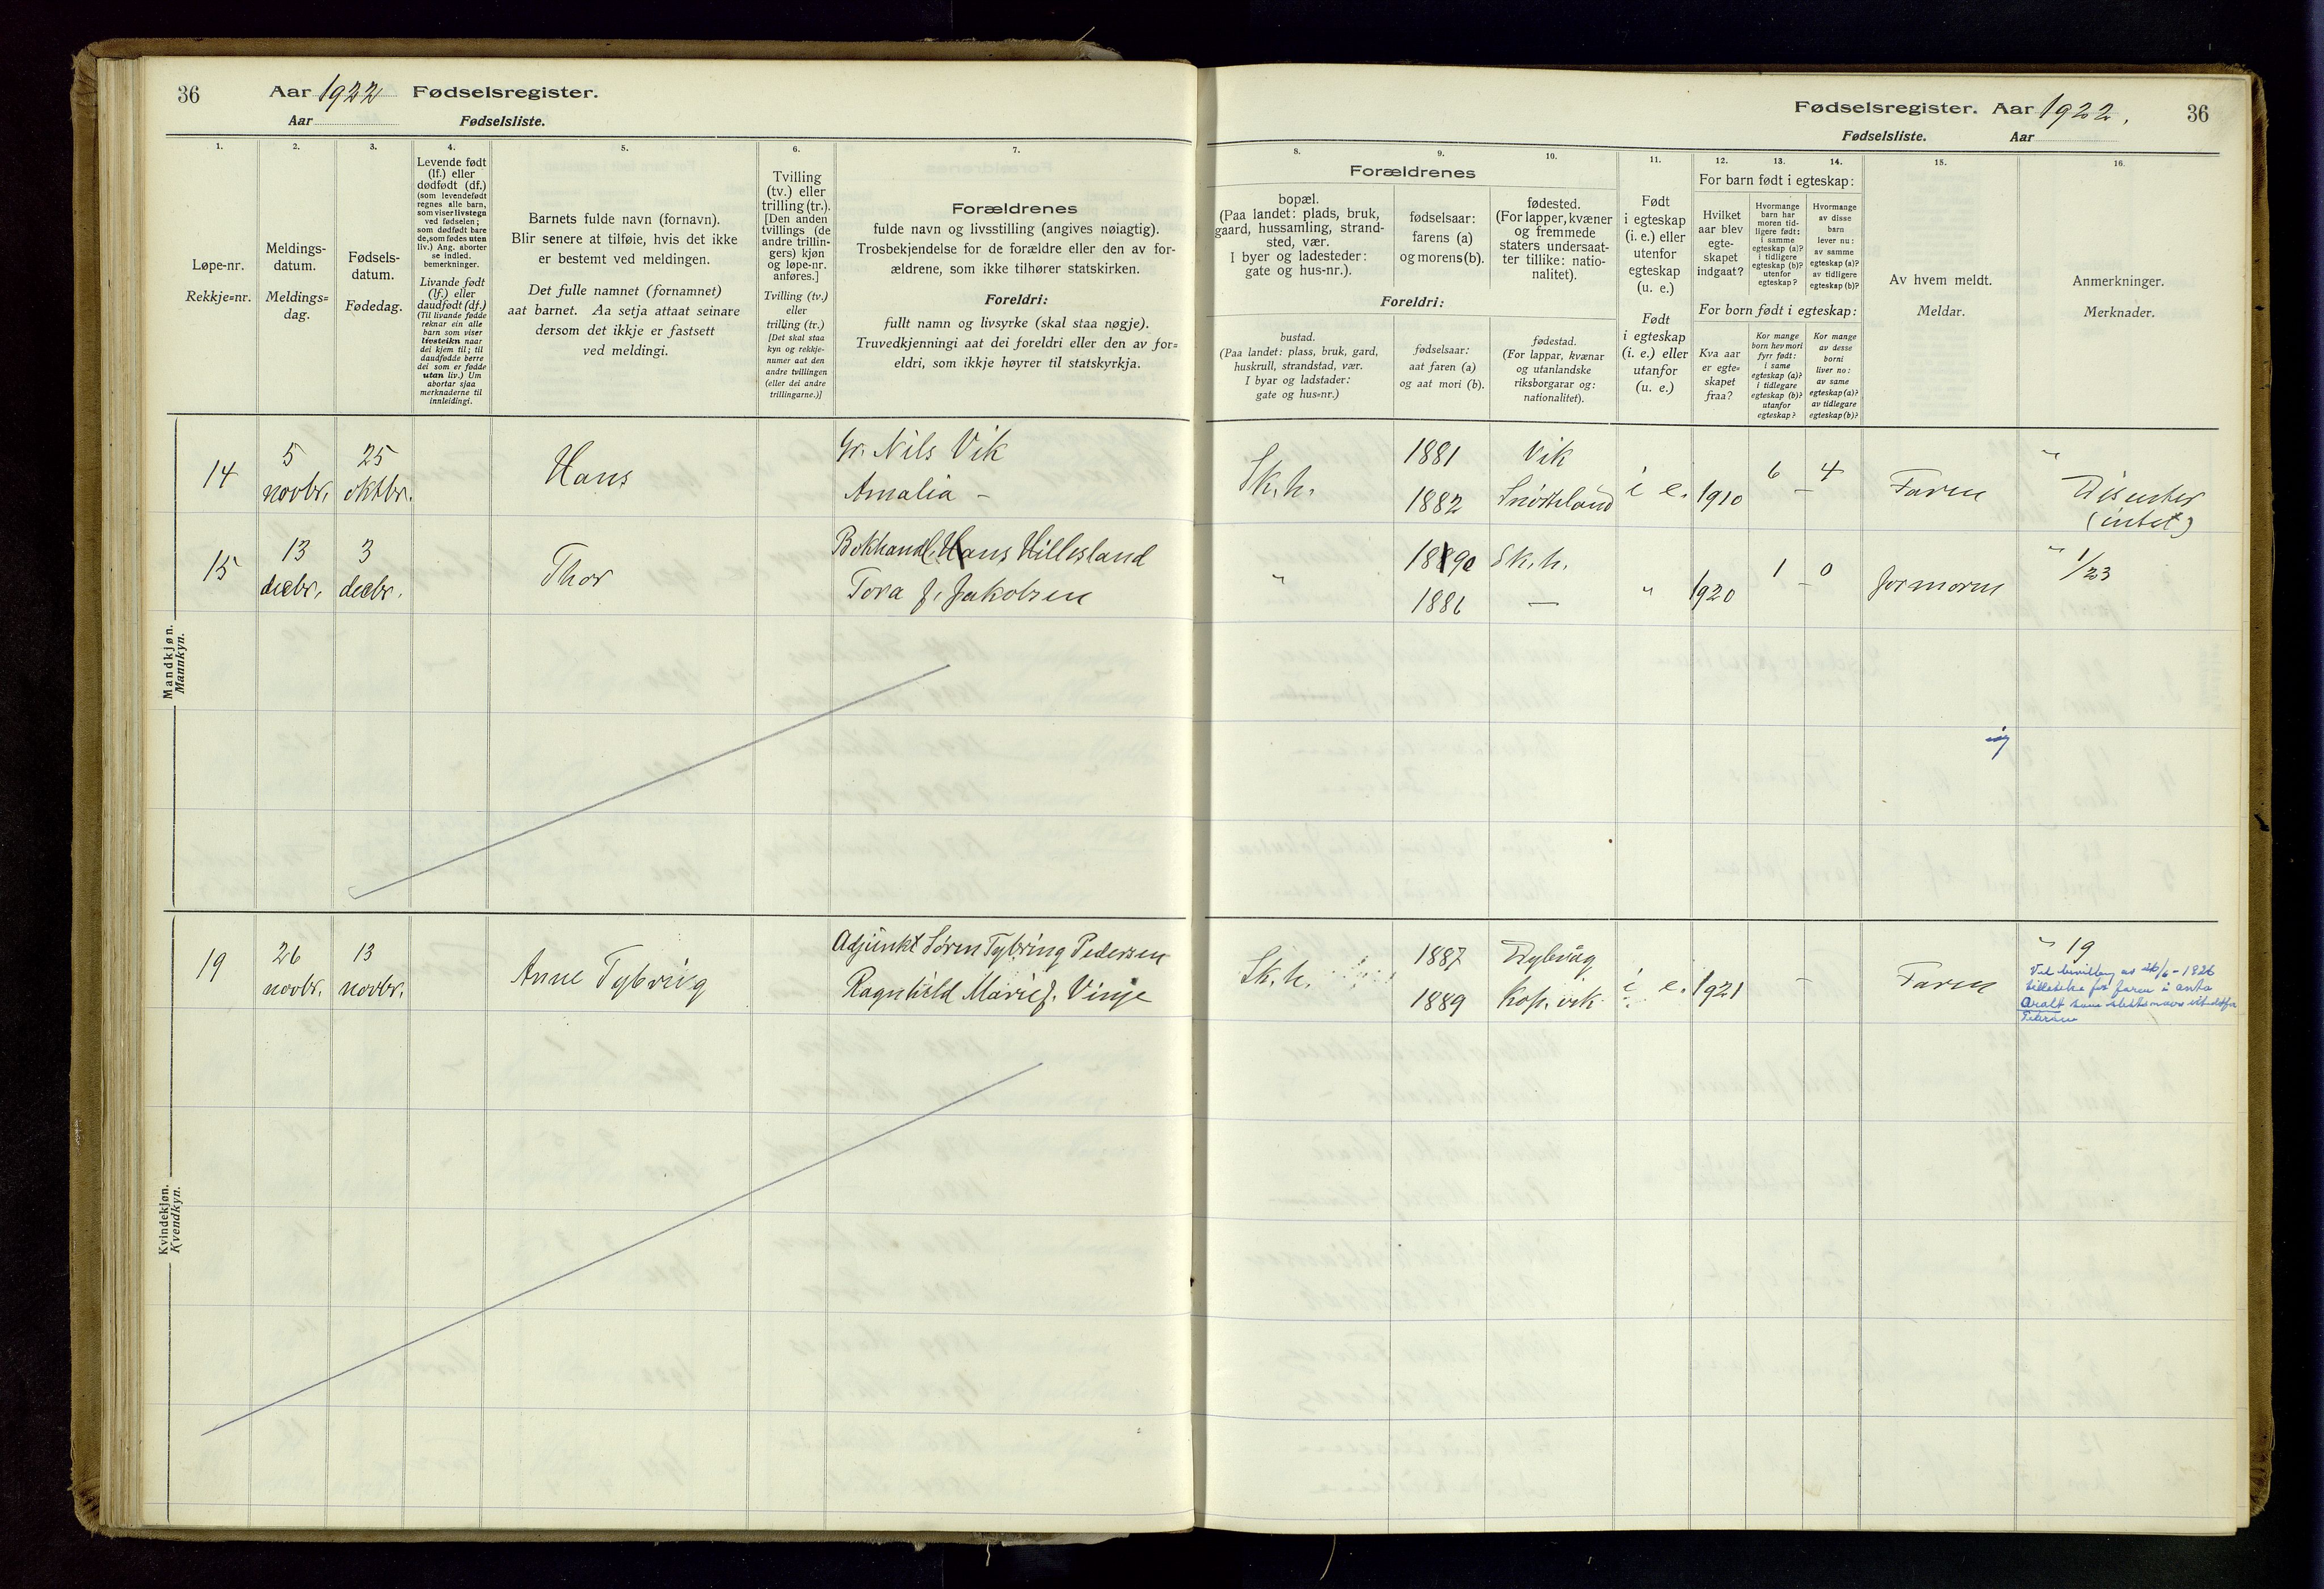 36
Aar 1922 Fødselsregister.
Aar Fødselsliste.
1.
2.
3.
4.
5.
6.
7.
Løpe-nr.
Rekkje=nr.
Meldings-
datum.
Meldings=
dag.
Fødsels-
datum.
Fødedag.
Levende født
(lf.) eller
dødfødt (df.)
(som levendefødt
regnes alle barn,
som viser livstegn
ved fødselen;
som dødfødt bare
de, som fødes uten
liv.) Ang. aborter
se indled.
bemerkninger.
Livande født
(lf.) eller
daudfødt (df.)
(Til livande fødde
reknar ein alle
barn som viser
livsteikn naar
dei kjem til; til
daudfødde berre
dei som er fødde
utan liv.) Um
abortar sjaa
merknaderne til
innleidingi.
Barnets fulde navn (fornavn).
Blir senere at tilføie, hvis det ikke
er bestemt ved meldingen.
Det fulle namnet (fornamnet)
aat barnet. Aa setja attaat seinare
dersom det ikkje er fastsett
ved meldingi.
Tvilling
(tv.) eller
trilling (tr.).
[Den anden
tvillings (de
andre trillin-
gers) kjøn
og løpe-nr.
anføres.]
Tvilling (tv.)
eller
trilling (tr.)
[Det skal staa
kyn og rekkje-
numer aat den
andre tvillingen
(eller dei andre
trillingarne.)]
Forældrenes
fulde navn og livsstilling (angives nøiagtig).
Trosbekjendelse for de forældre eller den av for-
ældrene, som ikke tilhører statskirken.
Foreldri:
fullt namn og livsyrke (skal staa nøgje).
Truvedkjenningi aat dei foreldri eller den av for=
eldri, som ikkje høyrer til statskyrkja.
Mandkjøn.
Mannkyn.
14
5
novbr.
25
oktbr.
Hans
Gr. Nils Vik
Amalia -
15
13
decbr.
3
decbr.
Thor
Bokhandl. Hans Hillesland
Tora f. Jakobsen
Kvindekjøn.
Kvendkyn.
19
26
novbr.
13
novbr.
Anne Tybring
Adjunkt Søren Tybring Pedersen
Ragnhild Marie f. Vinje
Fødselsregister. Aar 1922. 36
Fødselsliste. Aar
8.
9.
10.
11.
12.
13.
14.
15.
16.
Forældrenes
bopæl.
(Paa landet: plads, bruk,
gaard, hussamling, strand-
sted, vær.
I byer og ladesteder:
gate og hus-nr.).
fødselsaar:
farens (a)
og morens (b).
fødested.
(For lapper, kvæner
og fremmede
staters undersaat-
ter tillike: natio-
nalitet).
Foreldri:
bustad.
(Paa landet: plass, bruk, gard,
huskrull, strandstad, vær.
I byar og ladstader:
gate og hus=nr.)
fødselsaar:
aat faren (a)
og aat mori (b).
fødestad.
(For lappar, kvænar
og utanlandske
riksborgarar og:
nationalitet).
Født
i egteskap
(i. e.) eller
utenfor
egteskap
(u. e.)
Født
i egteskap
(i. e.) eller
utanfor
(u. e.)
For barn født i egteskap:
Hvilket
aar blev
egte-
skapet
indgaat?
Hvormange
barn har
moren tid-
ligere født:
i samme
egteskap (a)?
i tidligere
egteskap (b)?
utenfor
egteskap?
Hvormange
av disse
barn
lever nu:
av samme
egteskap (a)?
av tidligere
egteskap (b)?
For born født i egteskap:
Kva aar
er egte=
skapet
fraa?
Kor mange
born hev mori
fyrr født:
i same
egteskap (a)?
i tidlegare
egteskap (b)?
utanfor
egteskap?
Kor mange
av desse
borni
liver no:
av same
egteskap (a)?
av tidlegare
egteskap (b)?
Av hvem meldt.
Meldar.
Anmerkninger.
Merknader.
Sk.h.
1881
1882
Vik
i e.
1910
6 - 4
Faren
"
"
1890
1886
Sk.h.
—
"
1920
1 - 0
Jormoren
" 1/23
Sk.h.
1887
1889
Kop. vik
i e.
1921
-
Faren
" 19